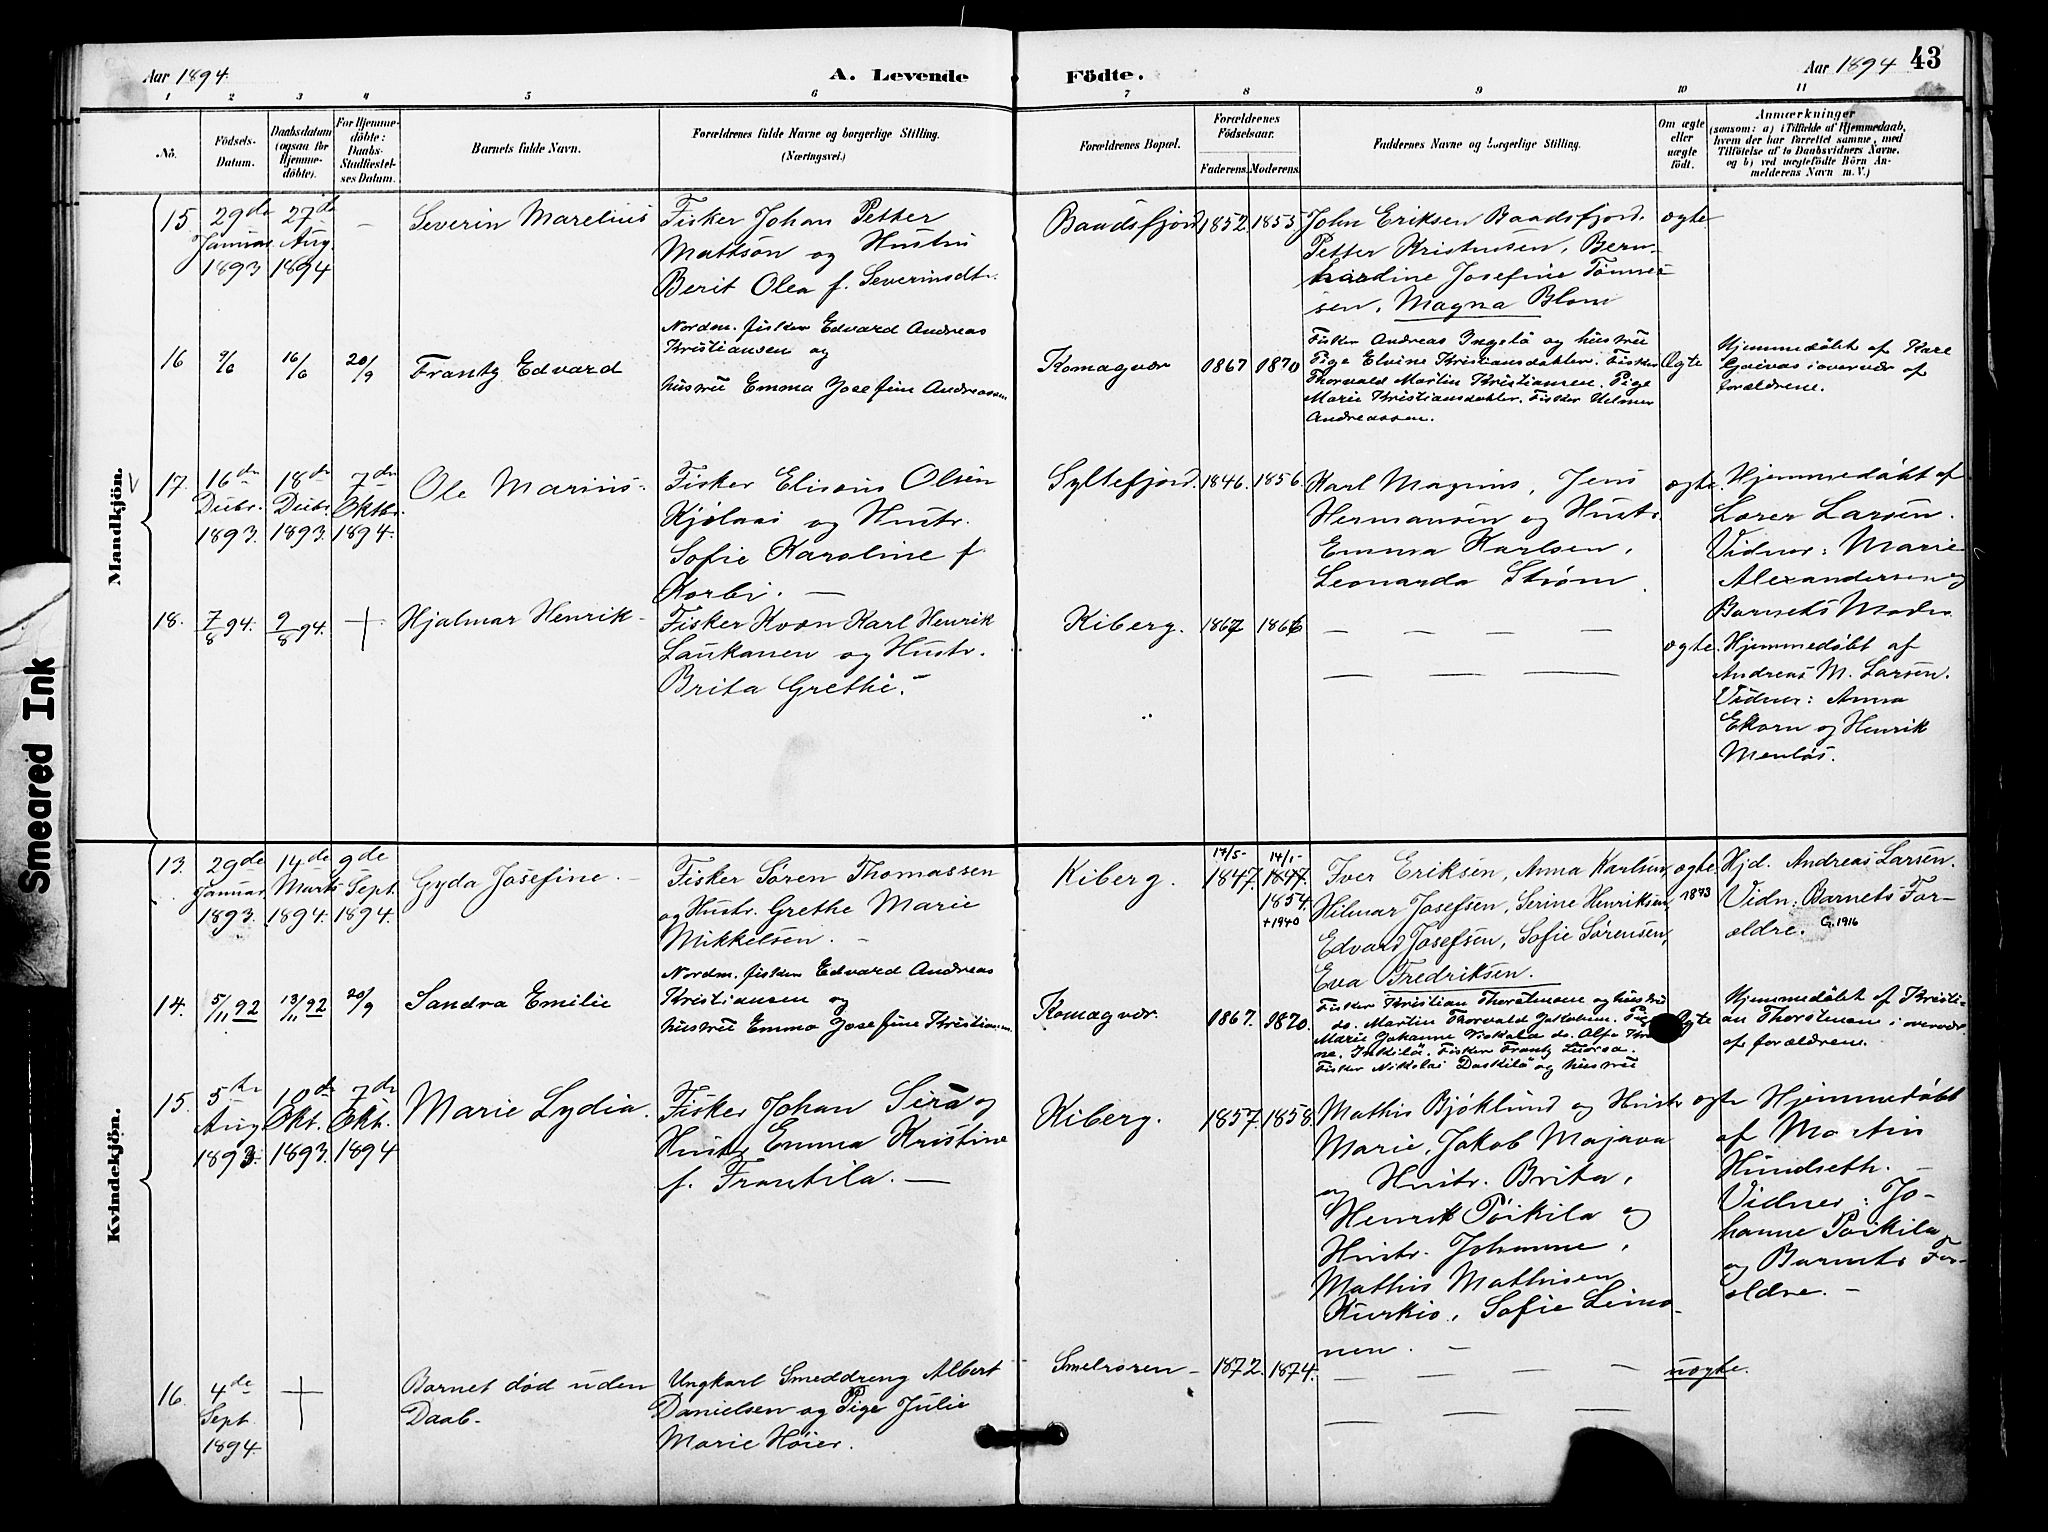 Aar 1894.
A. Levende
Födte.
Aar 1894
43
1 2 3 4 5 6 7 8 9 10 11
Nö.
Födsels-
Datum.
Daabsdatum
(ogsaa for
Hjemme-
döbte).
For Hjemme-
döbte:
Daabs-
Stadfæstel-
ses Datum.
Barnets fulde Navn.
Forældrenes fulde Navne og borgerlige Stilling.
(Næringsvei.)
Forældrenes Bopæl.
Forældrenes
Födselsaar.
Faderens. Moderens.
Faddernes Navne og borgerlige Stilling.
Om ægte
eller
uægte
födt.
Anmærkninger
(saasom: a) i Tilfælde af Hjemmedaab,
hvem der har forrettet samme, med
Tilföielse af to Daabsvidners Navne,
og b) ved uægtefödte Börn An-
melderens Navn m. V.)
Mandkjön.
15.
29de
Januar
1893
27de
Aug.
1894
–
Severin Marelius
Fisker Johan Petter
Mattson og Hustru
Berit Olea f. Severinsdtr.
Baadsfjord
1852.
1853
John Eriksen Baadsfjord.
Petter Kristensen, Bern-
hardine Josefine Tønnes-
sen, Magna Blom
ægte
16
9/6
16/6
20/9
Frantz Edvard
Nordm. fisker Edvard Andreas
Kristiansen og
hustru Emma Josefine Andreassen
Komagvær
1867
1870
Fisker Andreas Ingelä og hustru
Pige Elvine Kristiansdatter. Fisker
Thorvald Martin Kristiansen. Pige
Marie Kristiansdatter. Fisker Helmer
Andreassen.
Ægte
Hjemmedøbt af Karl
Goivas i overvær af
forældrene.
17.
16de
Decbr.
1893.
18de
Decbr.
1893.
7de
Oktbr.
1894.
Ole Marius.
Fisker Elisæus Olsen
Kjølaas og Hustr.
Sofie Karoline f.
Korbi. –
Syltefjord.
1846.
1856.
Karl Magnus, Jens
Hermansen og Hustr.
Emma Karlsen,
Leonarda Strøm.
ægte.
Hjemmedøbt af
Lærer Larsen.
Vidner: Marie
Alexandersen og
Barnets Moder
18.
7/8 94.
9/8 94.
+
Hjalmar Henrik
Fisker Kvæn Karl Henrik
Laukanen og Hustr.
Brita Grethe. –
Kiberg.
1867
1866
– – – –
– – –
ægte.
Hjemmedøbt af
Andreas M. Larsen.
Vidner: Anna
Ekorn og Henrik
Menløs.
Kvindekjön.
13.
29de
Januar
1893.
14de
Marts
1894.
9de
Sept.
1894.
Gyda Josefine. –
Fisker Søren Thomassen
og Hustr. Grethe Marie
Mikkelsen. –
Kiberg.
17/5-
1847.
14/1-
1847.
1854.
+1940
Iver Eriksen, Anna Karlsen,
Hilmar Josefsen, Serine Henriksen,
Edvard Josefsen, Sofie Sørensen,
Eva Fredriksen.
ægte
1873
Hjd. Andreas Larsen.
Vidn: Barnets For-
ældre.
G. 1916
14.
5/11 92
13/11 92
20/9
Sandra Emilie
Nordm. fisker Edvard Andreas
Kristiansen og
hustru Emma Josefine Kristiansen
Komagvær.
1867.
1870.
Fisker Kristian Thorstensen og hustru
do. Martin Thorvald Jakobsen. Pige
Marie Johanne do. Alfa
ne. Inkilä. Fisker Frantz
Fisker Nikolai Daskilä og hustru
Ægte
Hjemmedøbt af Kristi-
an Thorstensen i overvær
af forældrene.
15.
5te
Aug
1893.
10de
Okt.
1893.
7de
Okt.
1894
Marie Lydia.
Fisker Johan Sirä og
Hustr. Emma Kristine
f. Frantila. –
Kiberg.
1857.
1858.
Mathis Bjøklund og Hustr
Marie, Jakob Majava
og Hustr. Brita,
Henrik Pöikila og
Hustr. Johanne,
Mathis Mathisen
Kurkio, Sofie Leino-
nen. –
ægte
Hjemmedøbt
af Martin
Hundseth. –
Vidner: Jo-
hanne Pöikila
og Barnets For-
ældre. –
16.
4de
Sept.
1894.
+
Barnet død uden
Daab.
Ungkarl Smeddreng Albert
Danielsen og Pige Julie
Marie Høier.
Smelroren –
1872.
1874.
– – – –
– – –
uægte.
Smeared Ink